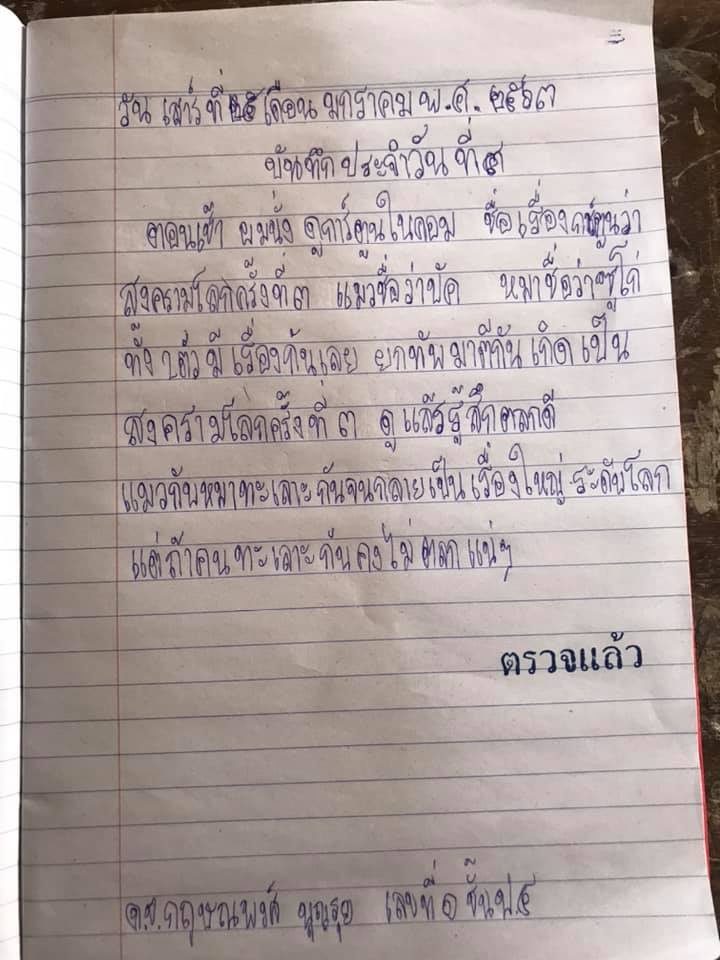 วันเสาร์ที่ ๒๕ เดือน มกราคม พ.ศ. ๒๕๖๓
บันทึกประจำวันที่ ๙
ตอนเช้า ผมนั่ง ดูการ์ตูนในคอม ชื่อเรื่องการ์ตูนว่า
สงครามโลกครั้งที่ ๓ แมวชื่อว่าบัค หมาชื่อว่าซูโก่
ทั้ง ๒ ตัว มีเรื่องกันเลย ยกทัพมาตีกัน เกิดเป็น
สงครามโลกครั้งที่ ๓ ดูแล้วรู้สึกตลกดี
แมวกับหมาทะเลาะกันจนกลายเป็นเรื่องใหญ่ ระดับโลก
แต่ถ้าคนทะเลาะกันคงไม่ตลกแน่ๆ
ตรวจแล้ว
ด.ช.กฤษณพงศ์ เลขที่ ๑ ชั้นป.๕